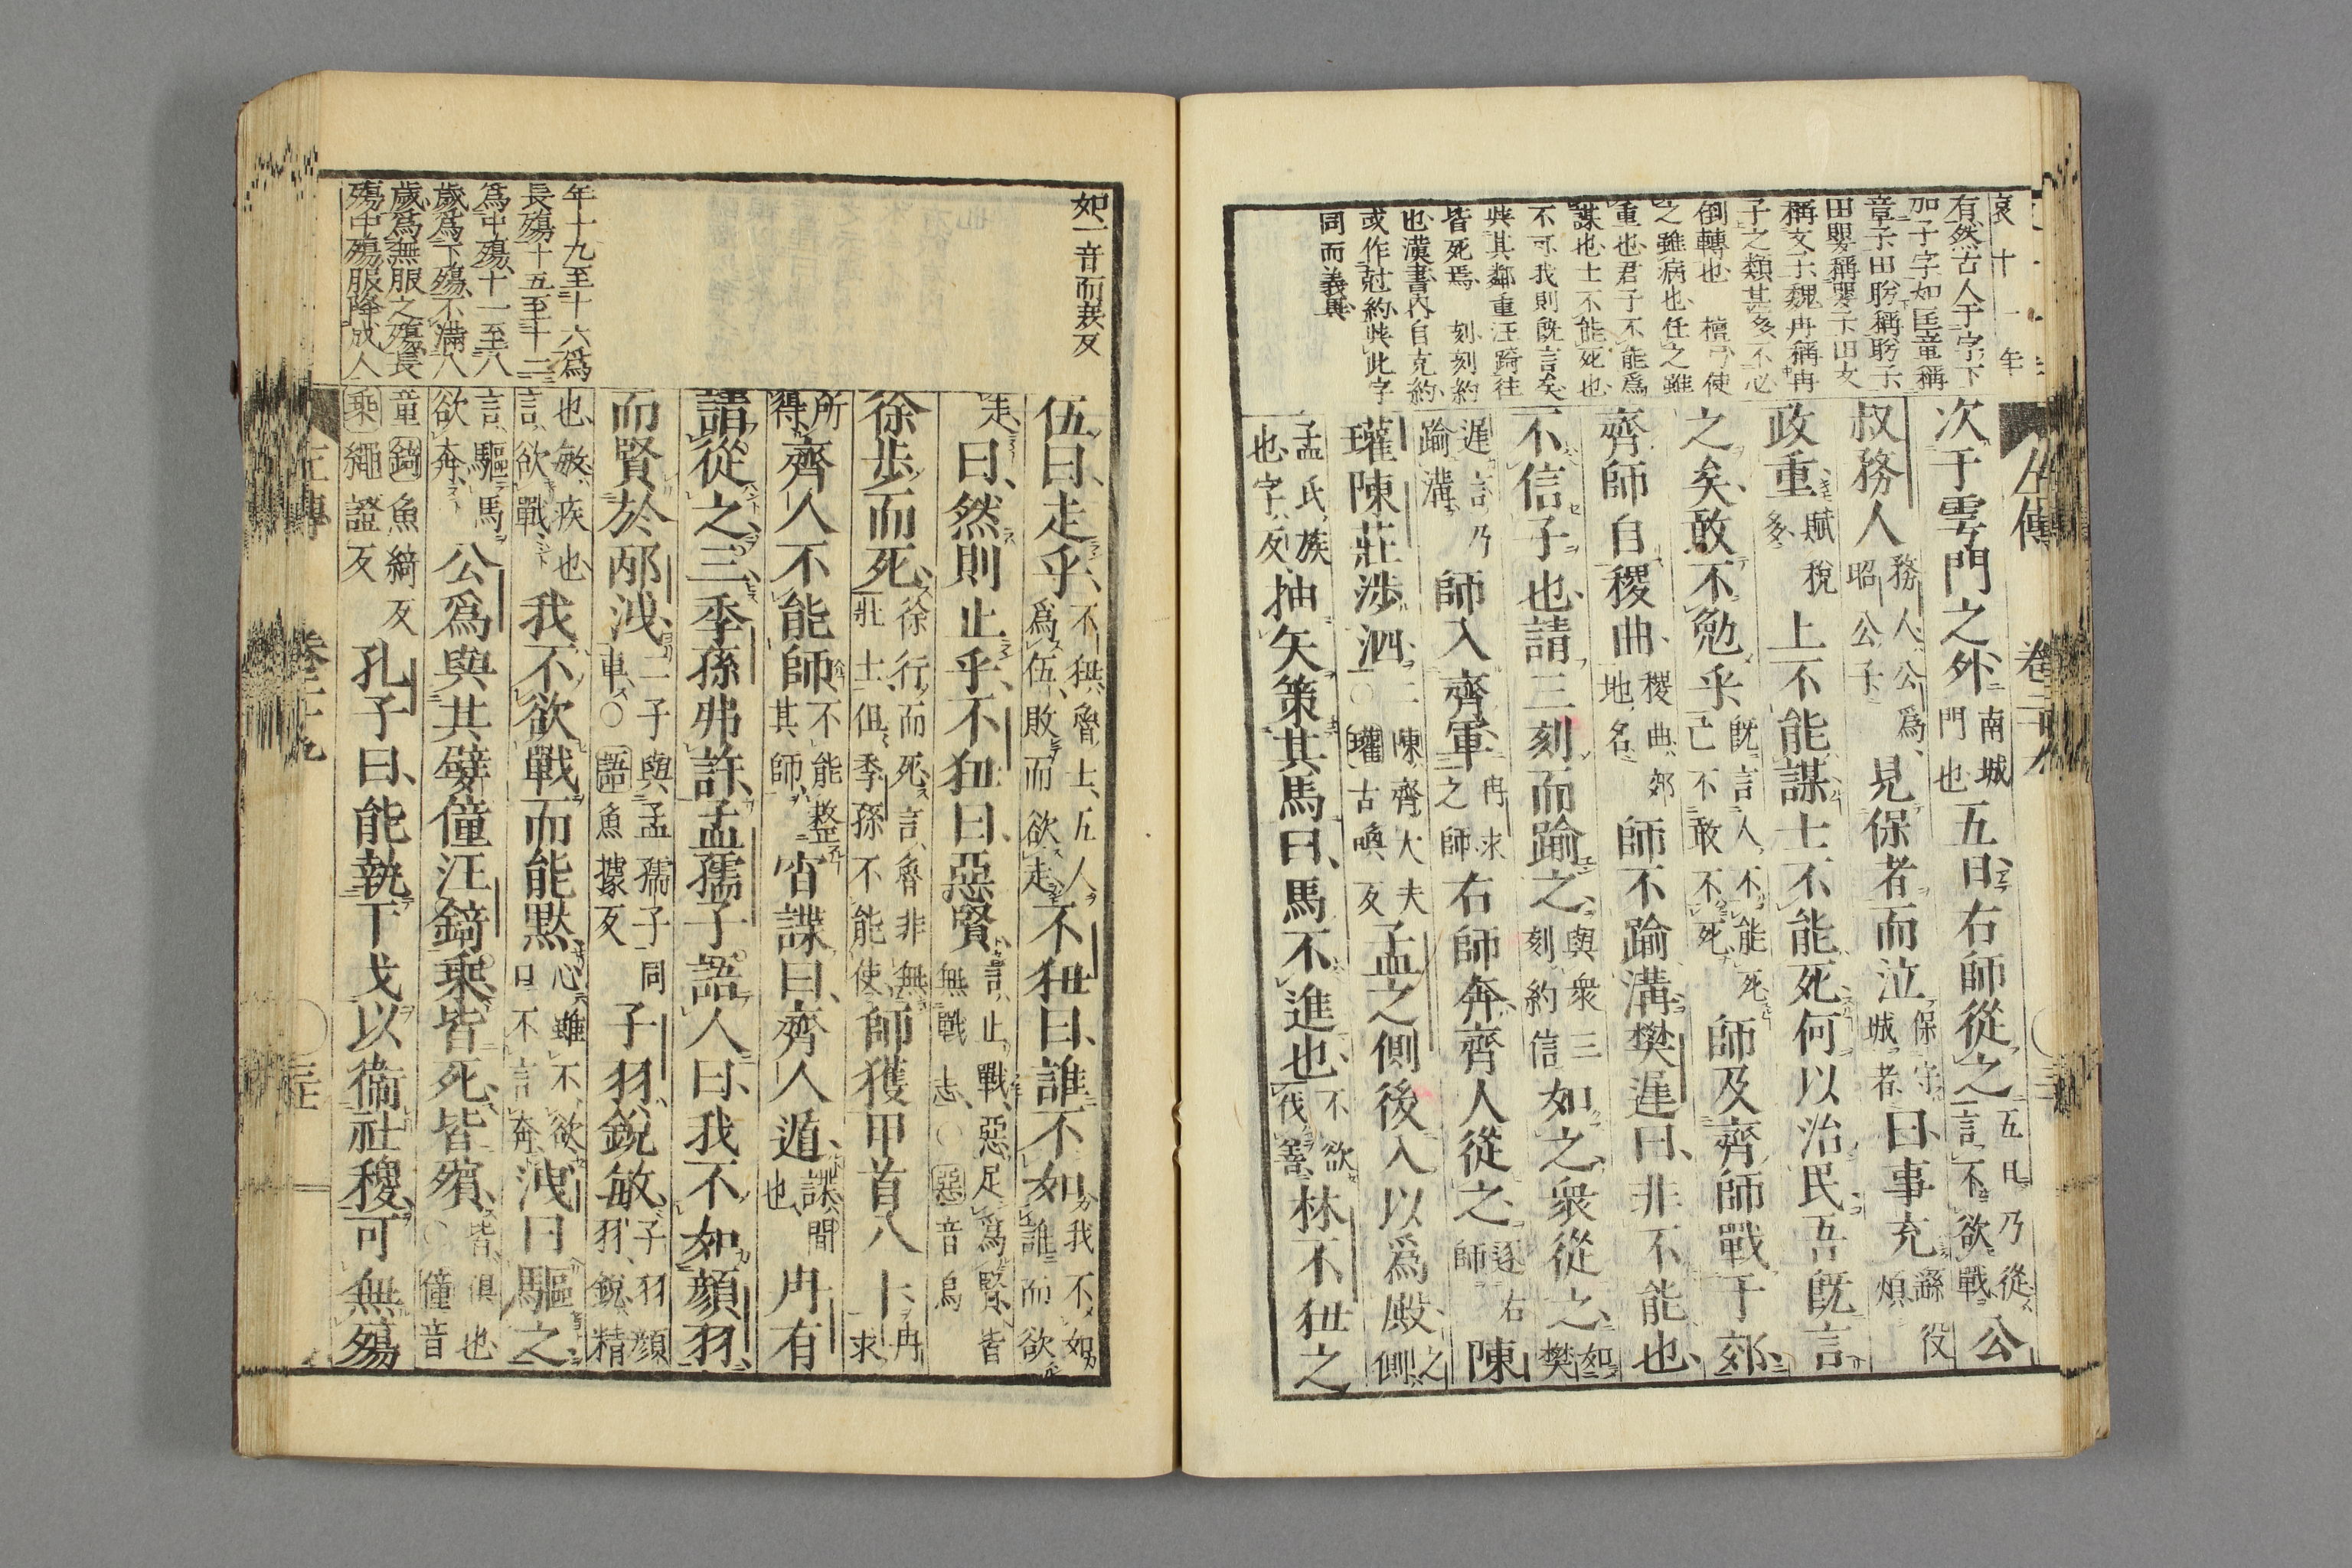 哀十一年
有然古人子字下
加子字如匡章稱
章子田肦稱肦子
田嬰稱嬰子田文
稱文子魏冉稱冉
子之類甚多不必
倒轉也 檀弓使
之雖病也任之雖
重也君子不能爲
謀也士不能死也
不可我則既言矣
與其鄰重汪踦往
皆死焉 刻刻約
也漢書內自克約
或作尅約與此字
同而義異
左傳 卷二十九
次于雩門之外南城門也五日右師從之五日乃從言不欲戰公
叔務人務人公爲昭公子見保者而泣保守城者曰事充繇役煩
政重賦稅多上不能謀士不能死何以治民吾既言
之矣敢不勉乎既言人不能死己不敢不死師及齊師戰于郊
齊師自稷曲稷曲郊地名師不踰溝樊遲曰非不能也
不信子也請三刻而踰之與衆三刻約信如之衆從之如樊
遲言乃踰溝師入齊軍冉求之師右師奔齊人從之逐右師陳
瓘陳莊涉泗二陳齊大夫○瓘古喚反孟之側後入以爲殿之側
孟氏族也字反抽矢策其馬曰馬不進也不欲伐善林不狃之
如一音而表反
年十九至十六爲
長殤十五至十二
爲中殤十一至八
歲爲下殤不滿八
歲爲無服之殤長
殤中殤服降成人
伍曰走乎不狃魯士五人爲伍敗而欲走不狃曰誰不如我不如誰而欲
走曰然則止乎不狃曰惡賢言止戰惡足爲賢皆無戰志○惡音烏
徐步而死徐行而死言魯非無壯士但季孫不能使師獲甲首八十冉求
所得齊人不能師不能整其師宵諜曰齊人遁諜間也冉有
請從之三季孫弗許孟孺子語人曰我不如顏羽
而賢於邴洩二子與孟孺子同車○語魚據反子羽銳敏子羽顏羽銳精
也敏疾也言欲戰我不欲戰而能默心雖不欲口不言奔洩曰驅之
言驅馬欲奔公爲與其嬖僮汪錡乘皆死皆殯皆俱也○僮音
童錡魚綺反乘繩證反孔子曰能執干戈以衞社稷可無殤
左傳 卷二十九